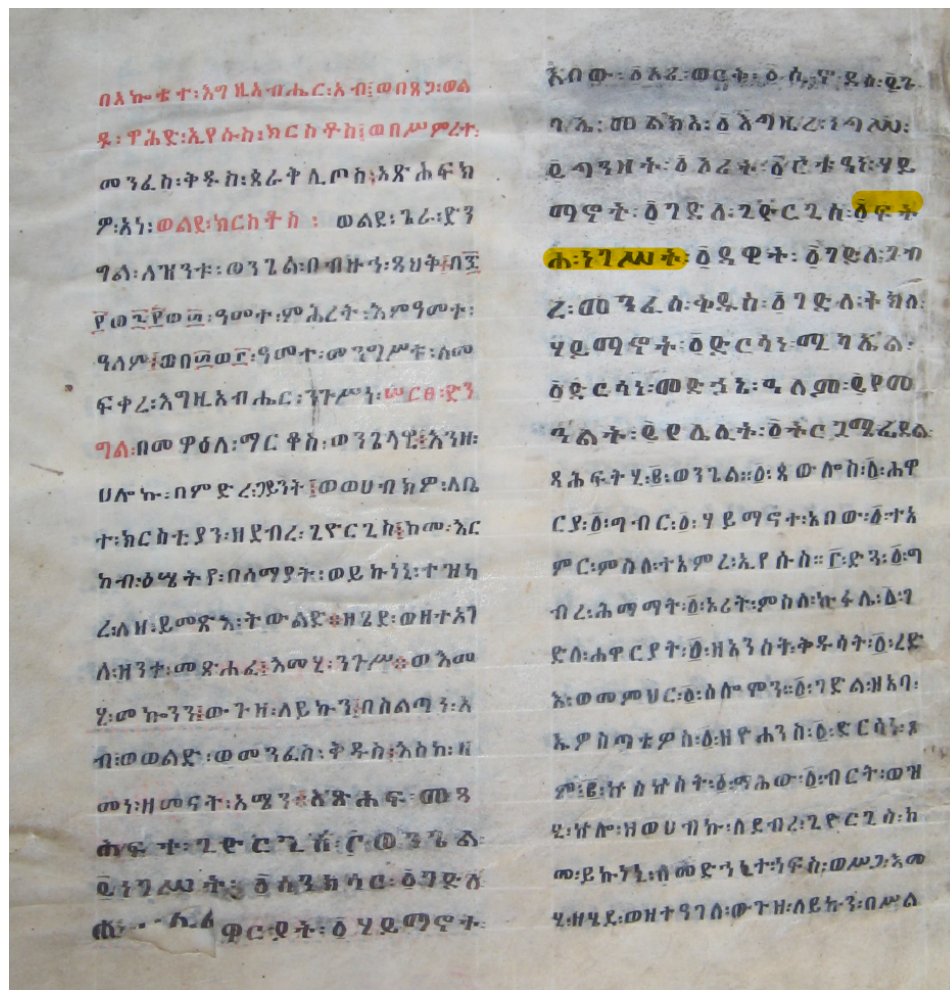 በአኰቴተ፡እግዚአብሔር፡አብ፤ወበጸጋ፡ወል
ዱ፡ዋሕድ፡ኢየሱስ፡ክርስቶስ፤ወበሥምረተ፡
መንፈስ፡ቅዱስ፡ጰራቅሊጦስ፤አጽሐፍክ
ዎ፡አነ፡ወልደ፡ክርስቶስ፡ ወልደ፡ጌራ፡ድን
ግል፡ለዝንቱ፡ወንጌል፡በብዙኅ፡ጻህቅ፤በ፸
፻ወ፺፻ወ፡ዓመተ፡ምሕረት፡እምዓመተ፡
ዓለም፤ወበ፡ዓመተ፡መንግሥቱ፡ለመ
ፍቀሬ፡እግዚአብሔር፡ንጉሥነ፡ሠርፀ፡ድን
ግል፡በመዋዕለ፡ማርቆስ፡ወንጌላዊ፤እንዘ፡
ሀሎኩ፡በምድረ፡ጋይንት፤ወወሀብክዎ፡ለቤ
ተ፡ክርስቲያን፡ዘደብረ፡ጊዮርጊስ፤ከመ፡እር
ከብ፡ዕሤትየ፡በሰማያት፡ወይኩነኒ፡ተዝካ
ረ፡ለዘ፡ይመጽእ፡ትውልድ፨ዘሄደ፡ወዘተአገ
ለ፡ዝንተ፡መጽሐፈ፤እመሂ፡ንጉሥ፨ወእመ
ሂ፡መኰንን፤ውጉዘ፡ለይኩን፤በስልጣነ፡አ
ብ፡ወወልድ፡ወመንፈስ፡ቅዱስ፤እስከ፡ዘ
መነ፡ዘመናት፡አሜን፨ለጽሐፍ፡መጻ
ሕፍተ፡ጊዮርጊስ፡፩ወንጌል
፪ነገሥት፡፩ስንክሳር፡፩ገድለ
ዋርያት፡፩ሃይማኖተ፡
አበው፡፩
መልክአ፡፩እግዚ
ሃይ
ማኖት፡፩ገድለ፡ጊዮርጊስ፡፩ፍት
ሐ፡ነገሥት፡፩ዳዊት፡፩ገድለ፡ገብ
ረ፡መንፈስ፡ቅዱስ፡፩ገድለ፡ተክለ፡
ሃይማኖት፡፩ድርሳነ፡ሚካኤል፡
፩ድርሳነ፡መድኃኔ፡ዓለም፡
ጻሕፍትሂ፡፪፡ወንጌል።፩፡ጳውሎስ፡፩፡ሐዋ
ርያ፡፩፡ግብር፡፩፡ሃይማኖተ፡አበው፡፩፡ተአ
ምር፡ምስለ፡ተአምረ፡ኢየሱስ።፩፡ድጓ፡፩፡ግ
ብረ፡ሕማማት፡፩፡ኦሪት፡ምስለ፡ኩፋሌ፡፩፡ገ
ድለ፡ሐዋርያት፡፩፡ዘአንስት፡ቅዱሳት፡፩፡ረድ
እ፡ወመምህር፡፩፡ሰሎሞን።፩፡ገድል፡ዘአባ፡
ኤዎስጣቴዎስ፡፩፡ዘዮሐንስ፡፩፡ድርሳነ፡
ብርት፡ወዝ
ሂ፡ኵሎ፡ዘወሀብኩ፡ለደብረ፡ጊዮርጊስ፡ከ
መ፡ይኩነኒ፡ለመድኃኒተ፡ነፍስ፡ወሥጋ፡እመ
ሂ፡ዘሄደ፡ወዘተዓገለ፡ውጉዘ፡ለይኩን፡በሥል